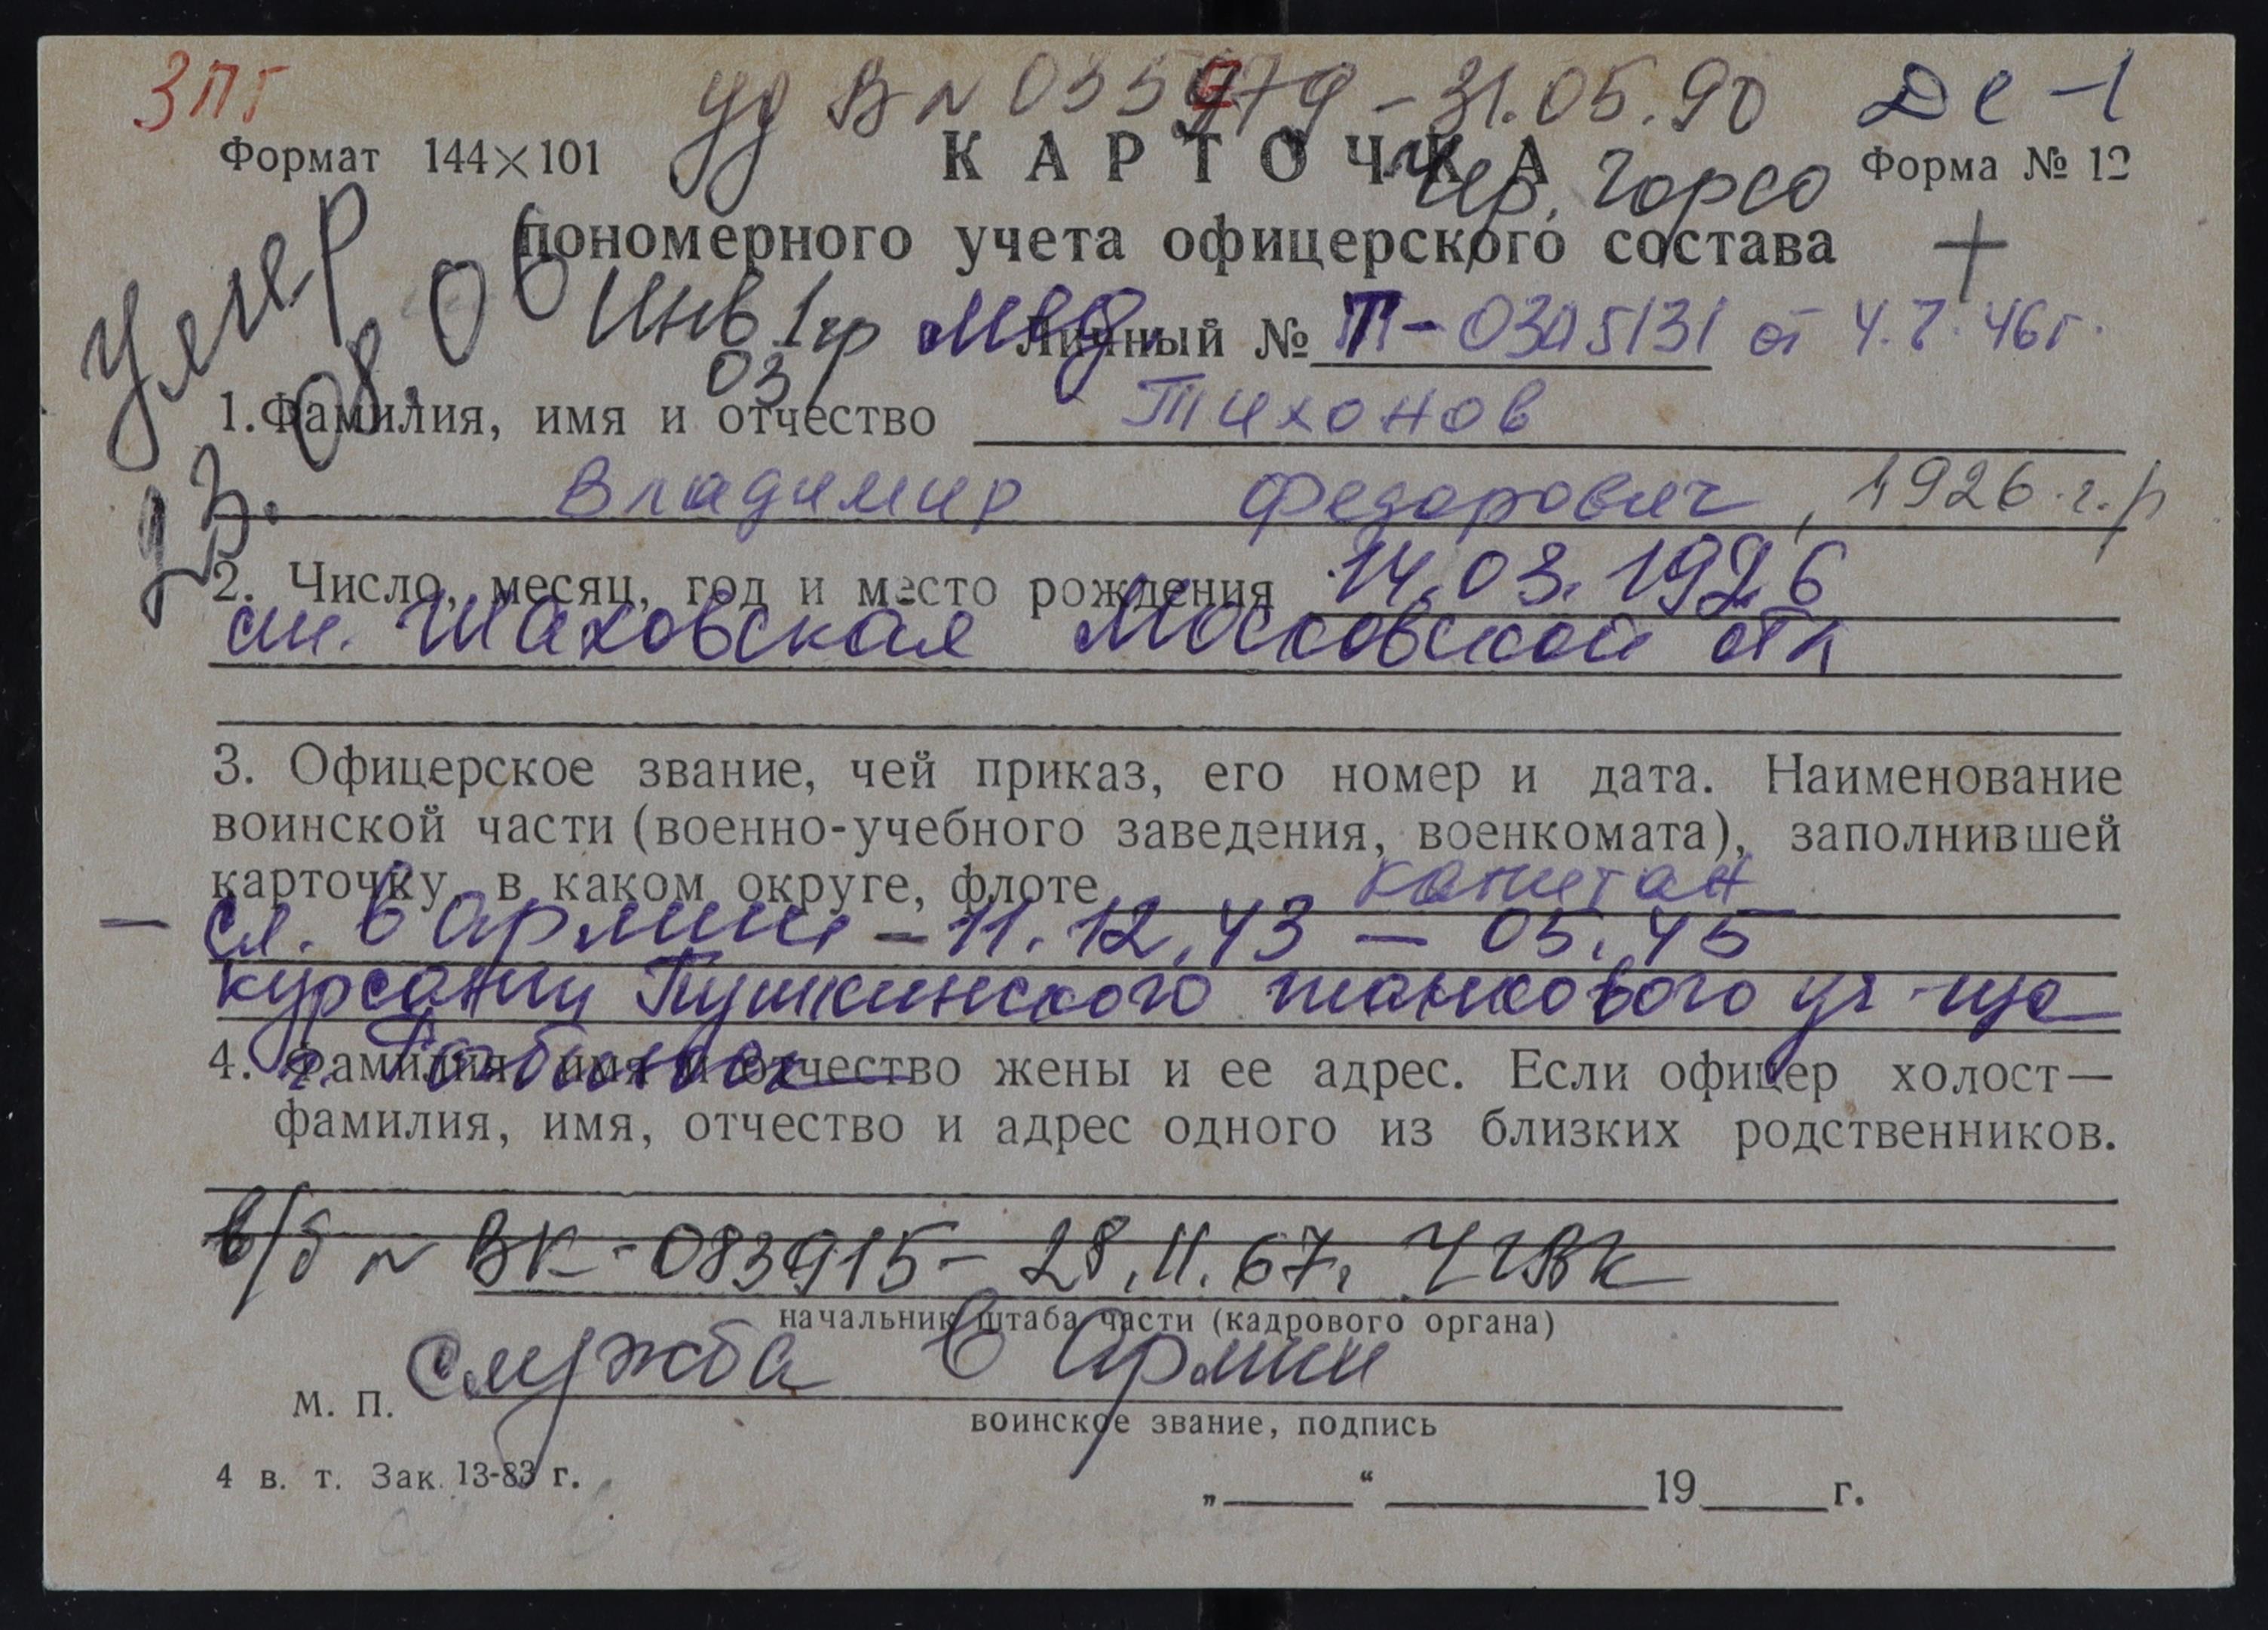 ЗПГ
уд В № 035979 - 31.05.90 Де-1
Формат 144×101
КАРТОЧКА
Форма № 12
Чер. Горсо
пономерного учета офицерского состава
+
Умер
23.08.06
Инв 1 гр
03
Личный № П-0305131 от 4.7.46г.
1. Фамилия, имя и отчество Тихонов
Владимир Федорович, 1926 г.р
2. Число, месяц, год и место рождения 14.03.1926
ст. Шаховская Московской обл
3. Офицерское звание, чей приказ, его номер и дата. Наименование
воинской части (военно-учебного заведения, военкомата), заполнившей
карточку, в каком округе, флоте капитан
- сл. в армии - 11.12.43 - 05.45
курсант Пушкинского танкового уч-ща
г. Рыбинск
4. Фамилия, имя и отчество жены и ее адрес. Если офицер холост—
фамилия, имя, отчество и адрес одного из близких родственников.
в/б № ВК-083915- 28.11.67. ЧГВК
начальник штаба части (кадрового органа)
служба в Армии
М. П.
воинское звание, подпись
4 в. т. Зак. 13-83 г.
„ “ 19 г.